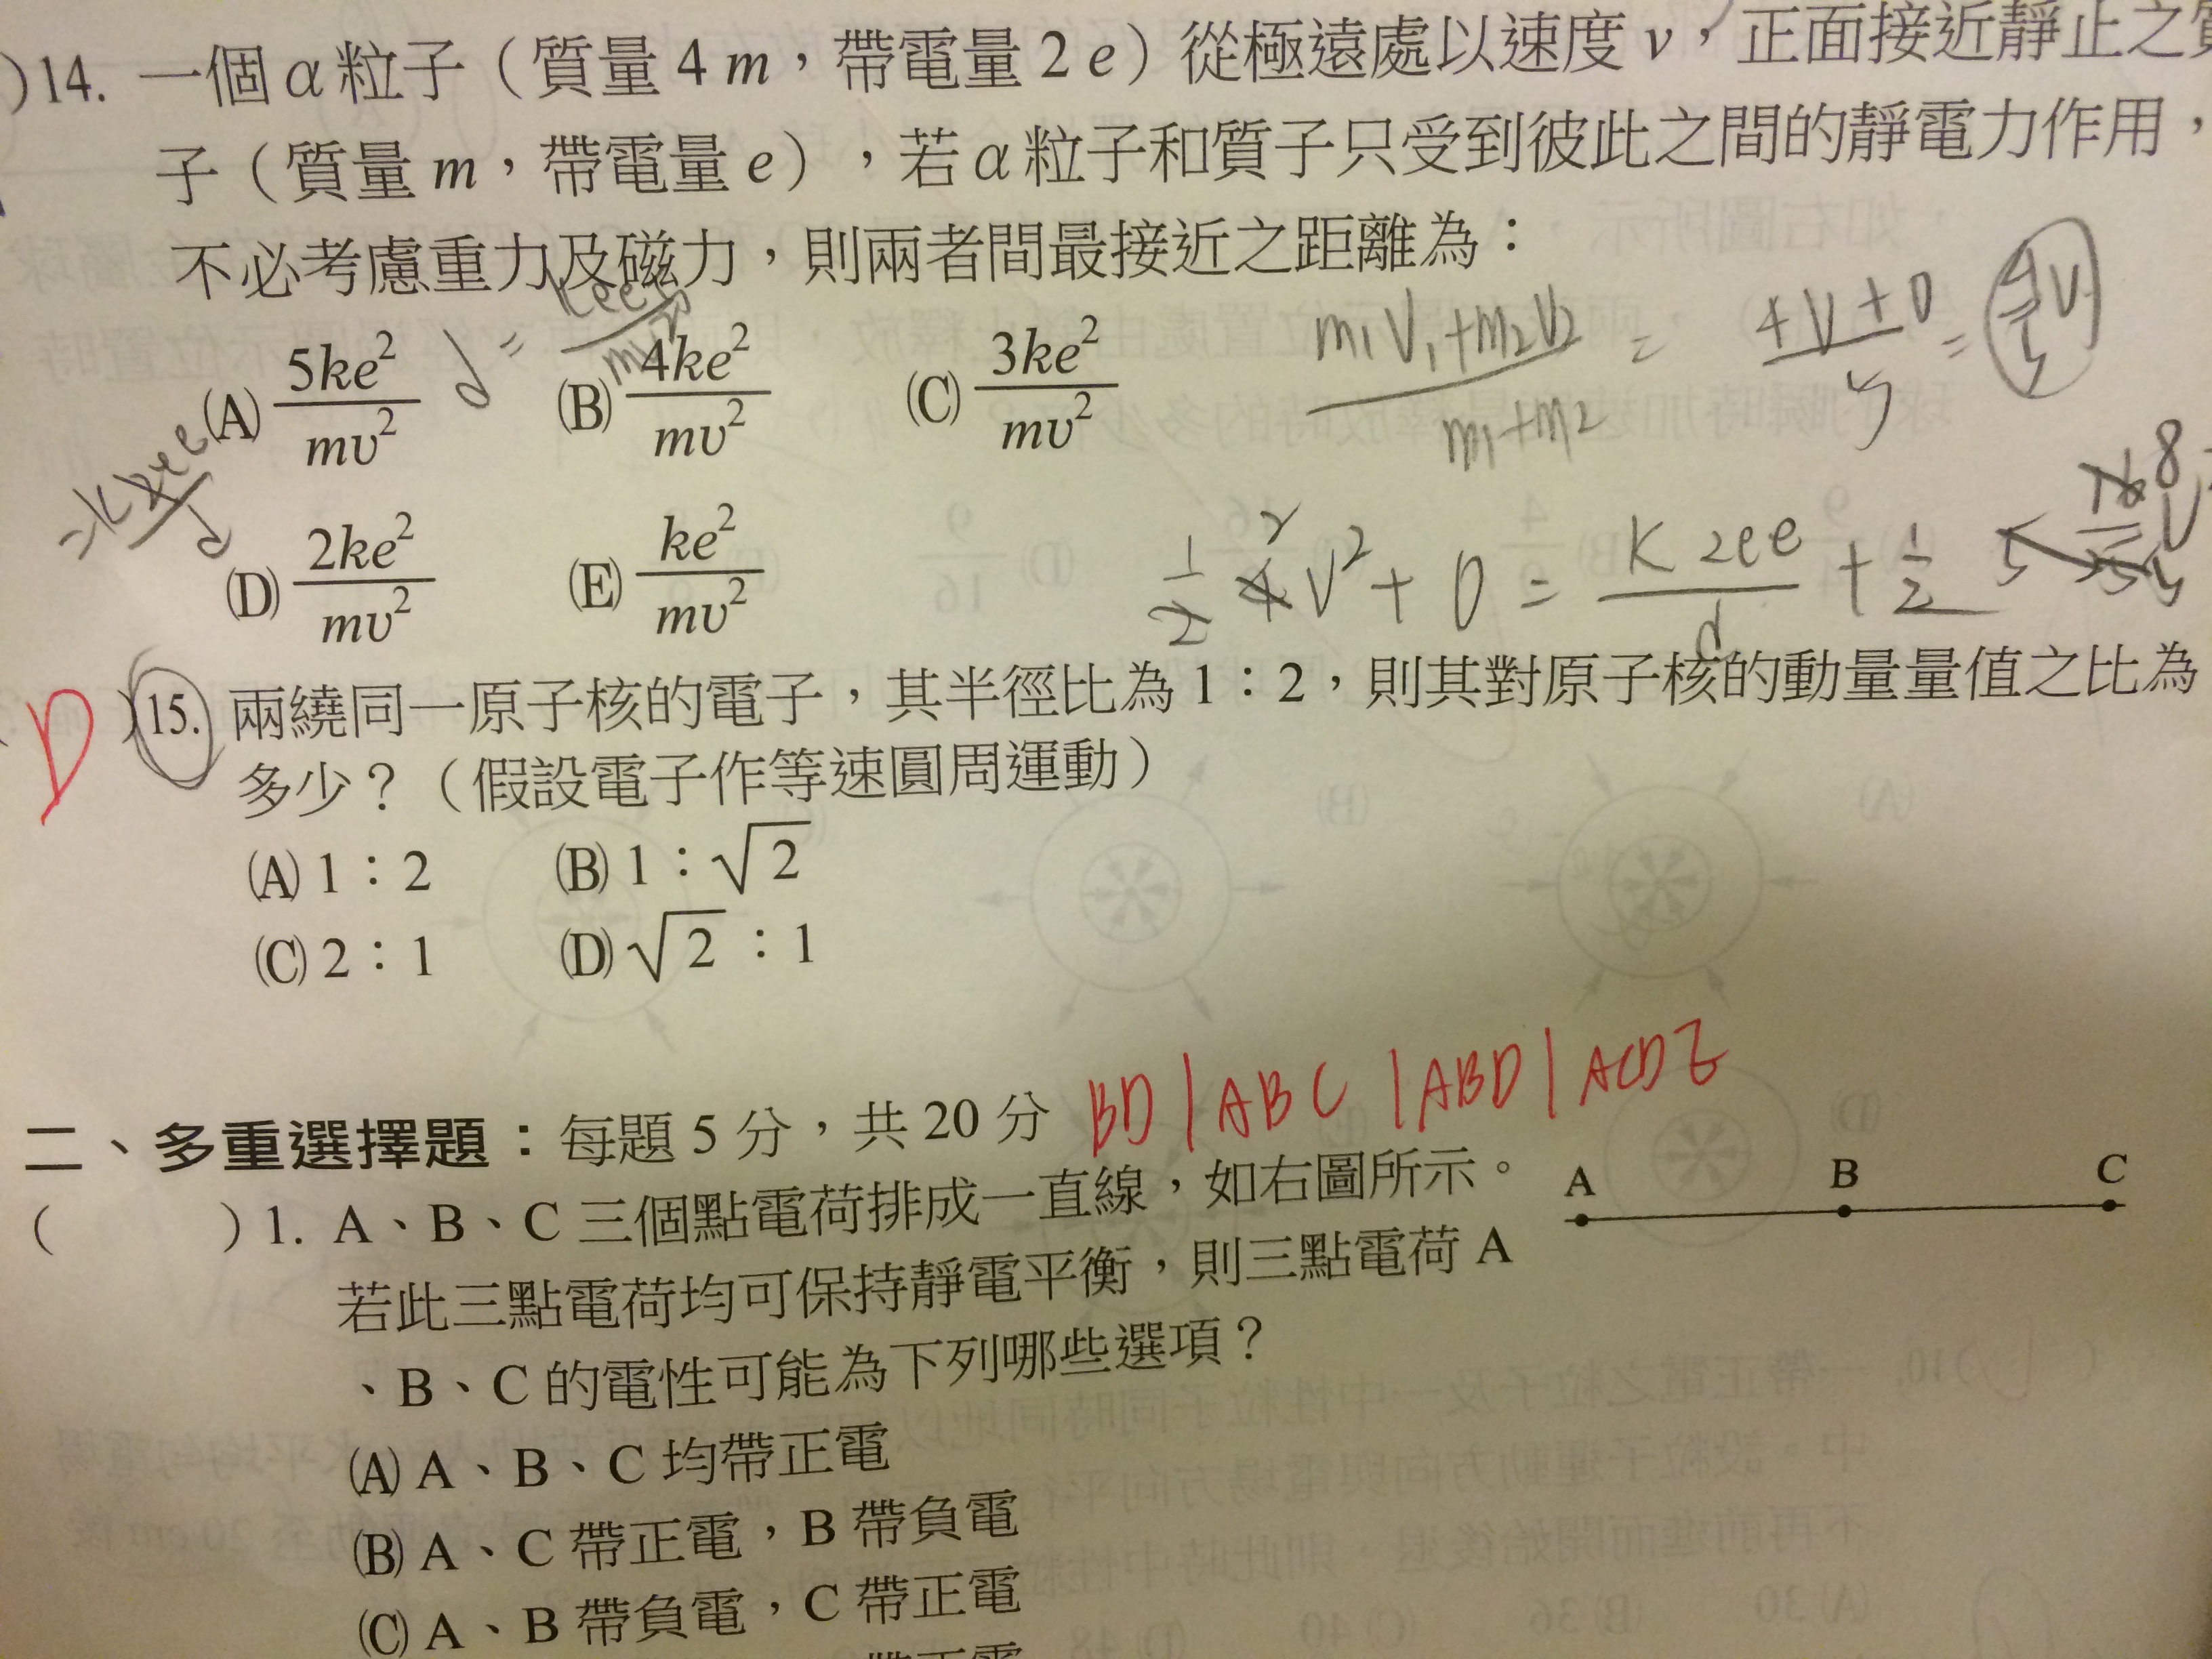 )14. 一個α粒子（質量 4 m，帶電量 2 e）從極遠處以速度 v，正面接近靜止之質
子（質量 m，帶電量 e），若α粒子和質子只受到彼此之間的靜電力作用，
不必考慮重力及磁力，則兩者間最接近之距離為：
(A) 5ke²/mv² (B) 4ke²/mv² (C) 3ke²/mv²
d =
m₁V₁+m₂V₂/m₁+m₂ = 4V+0/5 = 4/5 V
(D) 2ke²/mv² (E) ke²/mv²
1/2 4 V² + 0 = K 2ee/d + 1/2 5
D )15. 兩繞同一原子核的電子，其半徑比為 1：2，則其對原子核的動量量值之比為
多少？（假設電子作等速圓周運動）
(A) 1：2 (B) 1：√2
(C) 2：1 (D) √2：1
二、多重選擇題：每題 5 分，共 20 分 BD | ABC | ABD | ACDE
( )1. A、B、C 三個點電荷排成一直線，如右圖所示。
A B C
若此三點電荷均可保持靜電平衡，則三點電荷 A
、B、C 的電性可能為下列哪些選項？
(A) A、B、C 均帶正電
(B) A、C 帶正電，B 帶負電
(C) A、B 帶負電，C 帶正電